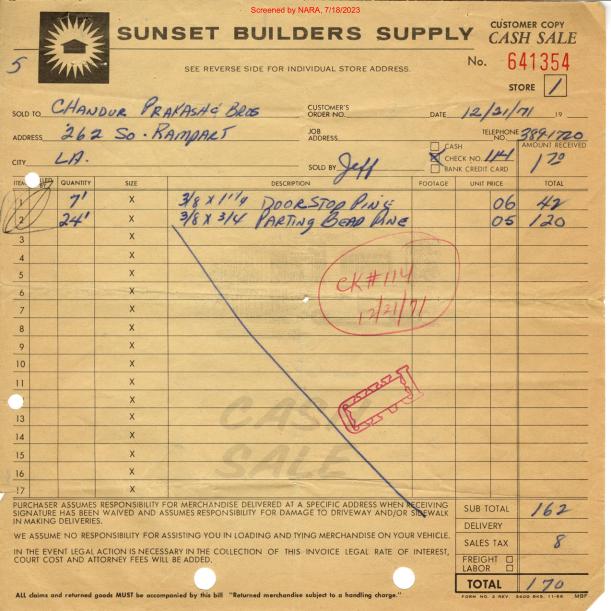 Screened by NARA, 7/18/2023
SUNSET BUILDERS SUPPLY
CUSTOMER COPY
CASH SALE
No. 641354
5
SEE REVERSE SIDE FOR INDIVIDUAL STORE ADDRESS.
STORE 1
SOLD TO Chandur Prakash & Bros CUSTOMER'S ORDER NO. DATE 12/21/71 19
ADDRESS 262 So. Rampart JOB ADDRESS TELEPHONE NO. 389-1720
CITY LA. SOLD BY Jeff
CASH
CHECK NO. 114
BANK CREDIT CARD
AMOUNT RECEIVED
1 70
ITEM QUANTITY SIZE DESCRIPTION FOOTAGE UNIT PRICE TOTAL
1 7' X 3/8 x 1 1/4 Doorstop Pine 06 42
2 24' X 3/8 x 3/4 Parting Bead Pine 05 120
3 X
4 X
5 X
6 X
7 X
8 X
9 X
10 X
11 X
X
13 X
14 X
15 X
16 X
17 X
CK#114
12/21/71
CASH
SALE
PURCHASER ASSUMES RESPONSIBILITY FOR MERCHANDISE DELIVERED AT A SPECIFIC ADDRESS WHEN RECEIVING
SIGNATURE HAS BEEN WAIVED AND ASSUMES RESPONSIBILITY FOR DAMAGE TO DRIVEWAY AND/OR SIDEWALK
IN MAKING DELIVERIES.
WE ASSUME NO RESPONSIBILITY FOR ASSISTING YOU IN LOADING AND TYING MERCHANDISE ON YOUR VEHICLE.
IN THE EVENT LEGAL ACTION IS NECESSARY IN THE COLLECTION OF THIS INVOICE LEGAL RATE OF INTEREST,
COURT COST AND ATTORNEY FEES WILL BE ADDED.
SUB TOTAL 162
DELIVERY
SALES TAX 8
FREIGHT
LABOR
TOTAL 170
ALL claims and returned goods MUST be accompanied by this bill "Returned merchandise subject to a handling charge."
FORM NO. 2 REV. 11-68 MBF